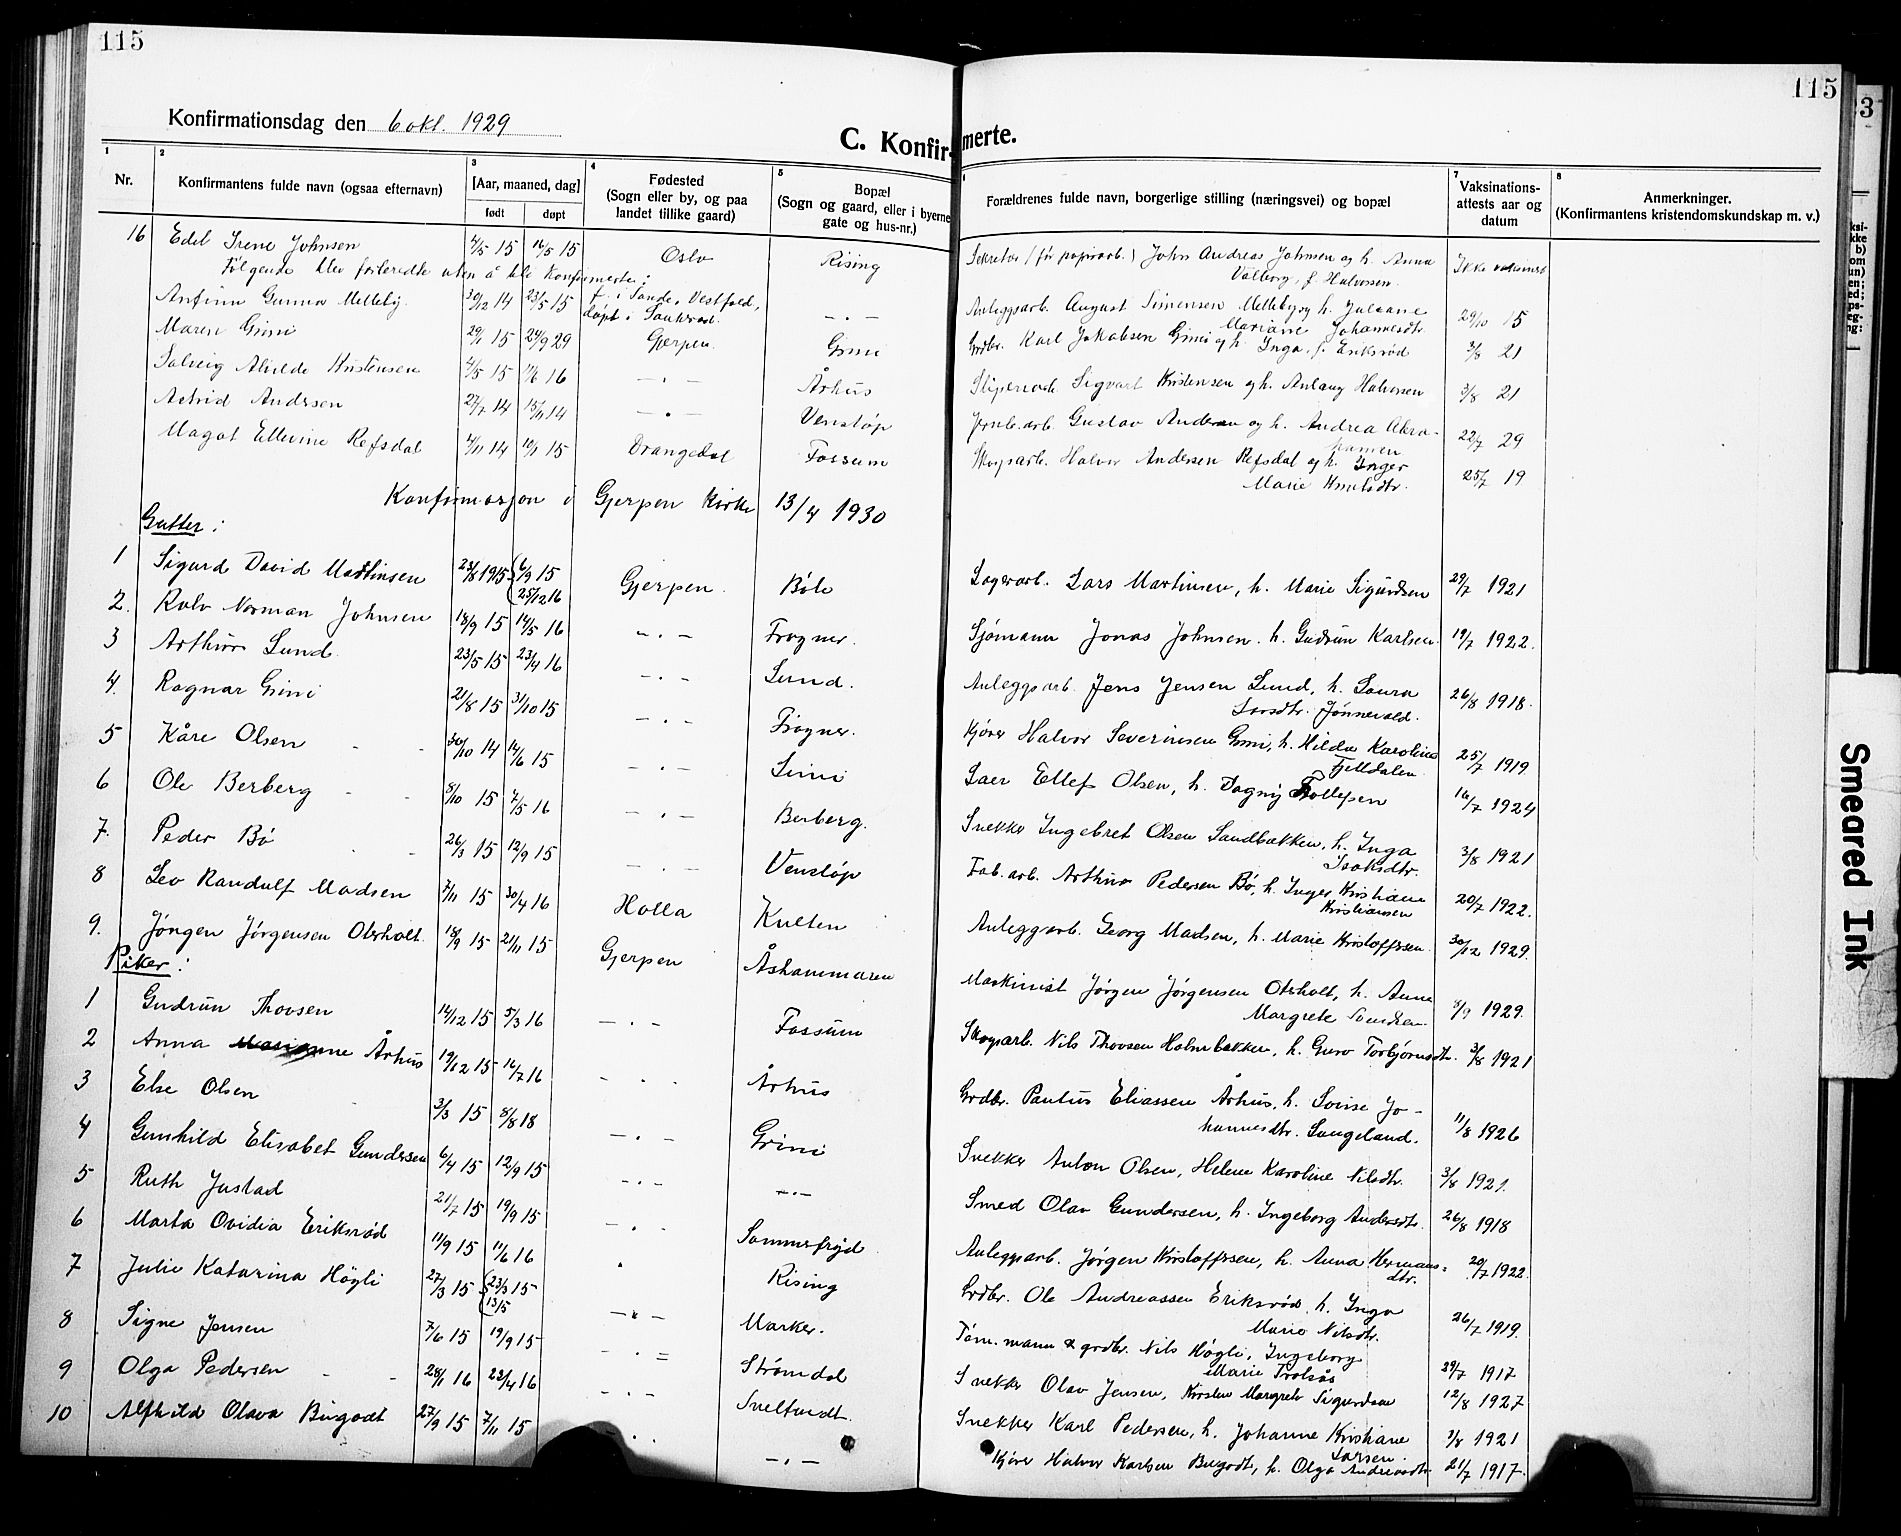 115
115
Konfirmationsdag den 6 okt. 1929
C. Konfir-
merte.
1 2 3 4 5 6 7 8
Nr.
Konfirmantens fulde navn (ogsaa efternavn)
[Aar, maaned, dag]
født døpt
Fødested
(Sogn eller by, og paa
landet tillike gaard)
Bopæl
(Sogn og gaard, eller i byerne
gate og hus-nr.)
Forældrenes fulde navn, borgerlige stilling (næringsvei) og bopæl
Vaksinations-
attests aar og
datum
Anmerkninger.
(Konfirmantens kristendomskundskap m. v.)
16 Edel Irene Johnsen 4/5 15 16/5 15 Oslo Rising Sekretær (før papirarb.) John Andreas Johnsen og h. Anna Ikke vaksinert
Valborg, f. Halvorsen
Følgende blev forberedte uten å bli konfirmerte:
Anfinn Gunnar Melleby 30/12 14 23/5 15 f. i Sande, Vestfold, - . - Anleggsarb. August Simensen Melleby og h. Juleane 29/10 15
døpt i Sauherad. Mariane Johannesdtr.
Maren Grini 29/1 15 24/9 29 Gjerpen Grini Grdbr. Karl Jakobsen Grini og h. Inga f. Eriksrød 3/8 21
Solveig Alvilde Kristensen 4/5 15 11/6 16 - . - Århus Sliperiarb. Sigvart Kristensen og h. Antany Halvorsen 3/8 21
Astrid Andersen 27/7 14 15/11 14 - . - Venstøp Jernb.arb. Gustav Andersen og h. Andrea Abra- 22/7 29
hamsen
Magot Ellevine Refsdal 4/11 14 10/1 15 Drangedal Fossum Skogsarb. Halvor Andersen Refsdal og h. Inger 25/7 19
Marie Knutsdtr.
Konfirmasjon i Gjerpen kirke 13/4 1930
Gutter:
1 Sigurd David Martinsen 23/8 1915 6/9 15 Gjerpen Bøle Lagerarb. Lars Martinsen, h. Marie Sigurdsen 29/7 1921
25/12 16
2. Rolv Norman Johnsen 18/9 15 14/5 16 - . - Frogner. Sjømann Jonas Johnsen. h. Gudrun Karlsen. 19/7 1922.
3 Arthur Lund 23/5 15 23/4 16 - . - Lund. Anleggsarb. Jens Jensen Lund, h. Laura 26/8 1918.
Larsdtr. Jønnevald.
4. Ragnar Grini 21/8 15 31/10 15 - . - Frogner. Kjører Halvor Severinsen Grini, h. Hilda Karoline 25/7 1919.
Fjelldalen
5 Kåre Olsen 30/10 14 14/6 15 - . - Limi Laer Ellef Olsen, h. Dagny Tollefsen 16/7 1924
6 Ole Berberg 5/10 15 7/5 16 - . - Berberg. Snekker Ingebret Olsen Sandbakken, h. Inga 3/8 1921
Isaksdtr.
7. Peder Bø 26/3 15 12/9 15 - . - Venstøp Fab. arb. Arthur Pedersen Bø, h. Inger Kristiane 20/7 1922.
Kristiansen
8 Leo Randulf Madsen 7/11 15 30/4 16 Holla Kulten Anleggarb. Georg Madsen, h. Marie Kristoffersen 30/12 1929.
9. Jørgen Jørgensen Obrholt 18/9 15 21/11 15 Gjerpen Åshammaren Maskinist Jørgen Jørgensen Obrholt, h. Anna 8/9 1929.
Margrete Svendsen
Piker:
1 Gudrun Thovsen 14/12 15 5/3 16 - . - Fossum Skogsarb. Nils Thovsen Holmbakken, h. Guro Torbjørnsdtr. 3/8 1921
2 Anna Marianne Århus 19/12 15 16/7 16 - . - Århus Grdbr. Pantus Eliassen Århus, h. Lovise Jo- 11/8 1926
hannesdtr. Langeland.
3 Else Olsen 3/3 15 8/8 18 - . - Grini Snekker Anton Olsen, Helene Karoline Nilsdtr. 3/8 1921.
4 Gunhild Elisabet Gundersen 6/4 15 12/9 15 - . - - . - Smed Olav Gundersen, h. Ingeborg Andersdtr. 26/8 1918
5 Ruth Justad 21/7 15 19/9 15 - . - Sommerfryd Anleggsarb. Jørgen Kristoffersen, h. Anna Hermans= 20/7 1922.
dtr.
6 Marta Ovidia Eriksrød 11/9 15 11/6 16 . Rising Grdbr. Ole Andreassen Eriksrød, h. Inga 26/7 1919.
Marie Nilsdtr.
7 Julie Katarina Høgli 27/3 15 23/3 15 - " - Marker. Tøm. mann & grdbr. Nils Høgli, Ingeborg 29/7 1917
13/5 Marie Trolsås
8 Signe Jensen 7/6 15 19/9 15 - . = Strømdal Snekker Olav Jensen, Kirsten Margrete Sigurdsen 12/8 1927
9 Olga Pedersen 28/1 16 23/4 16 - . - Sneltvedt. Snekker Karl Pedersen, h. Johanne Kristiane 3/8 1921
Larsen.
10 Alfhild Olava Bugodt 27/9 15 7/11 15 - . - - . - Kjører Halvor Karlsen Bugodt, h. Olga Andreasdtr 21/7 1917.
Smeared Ink